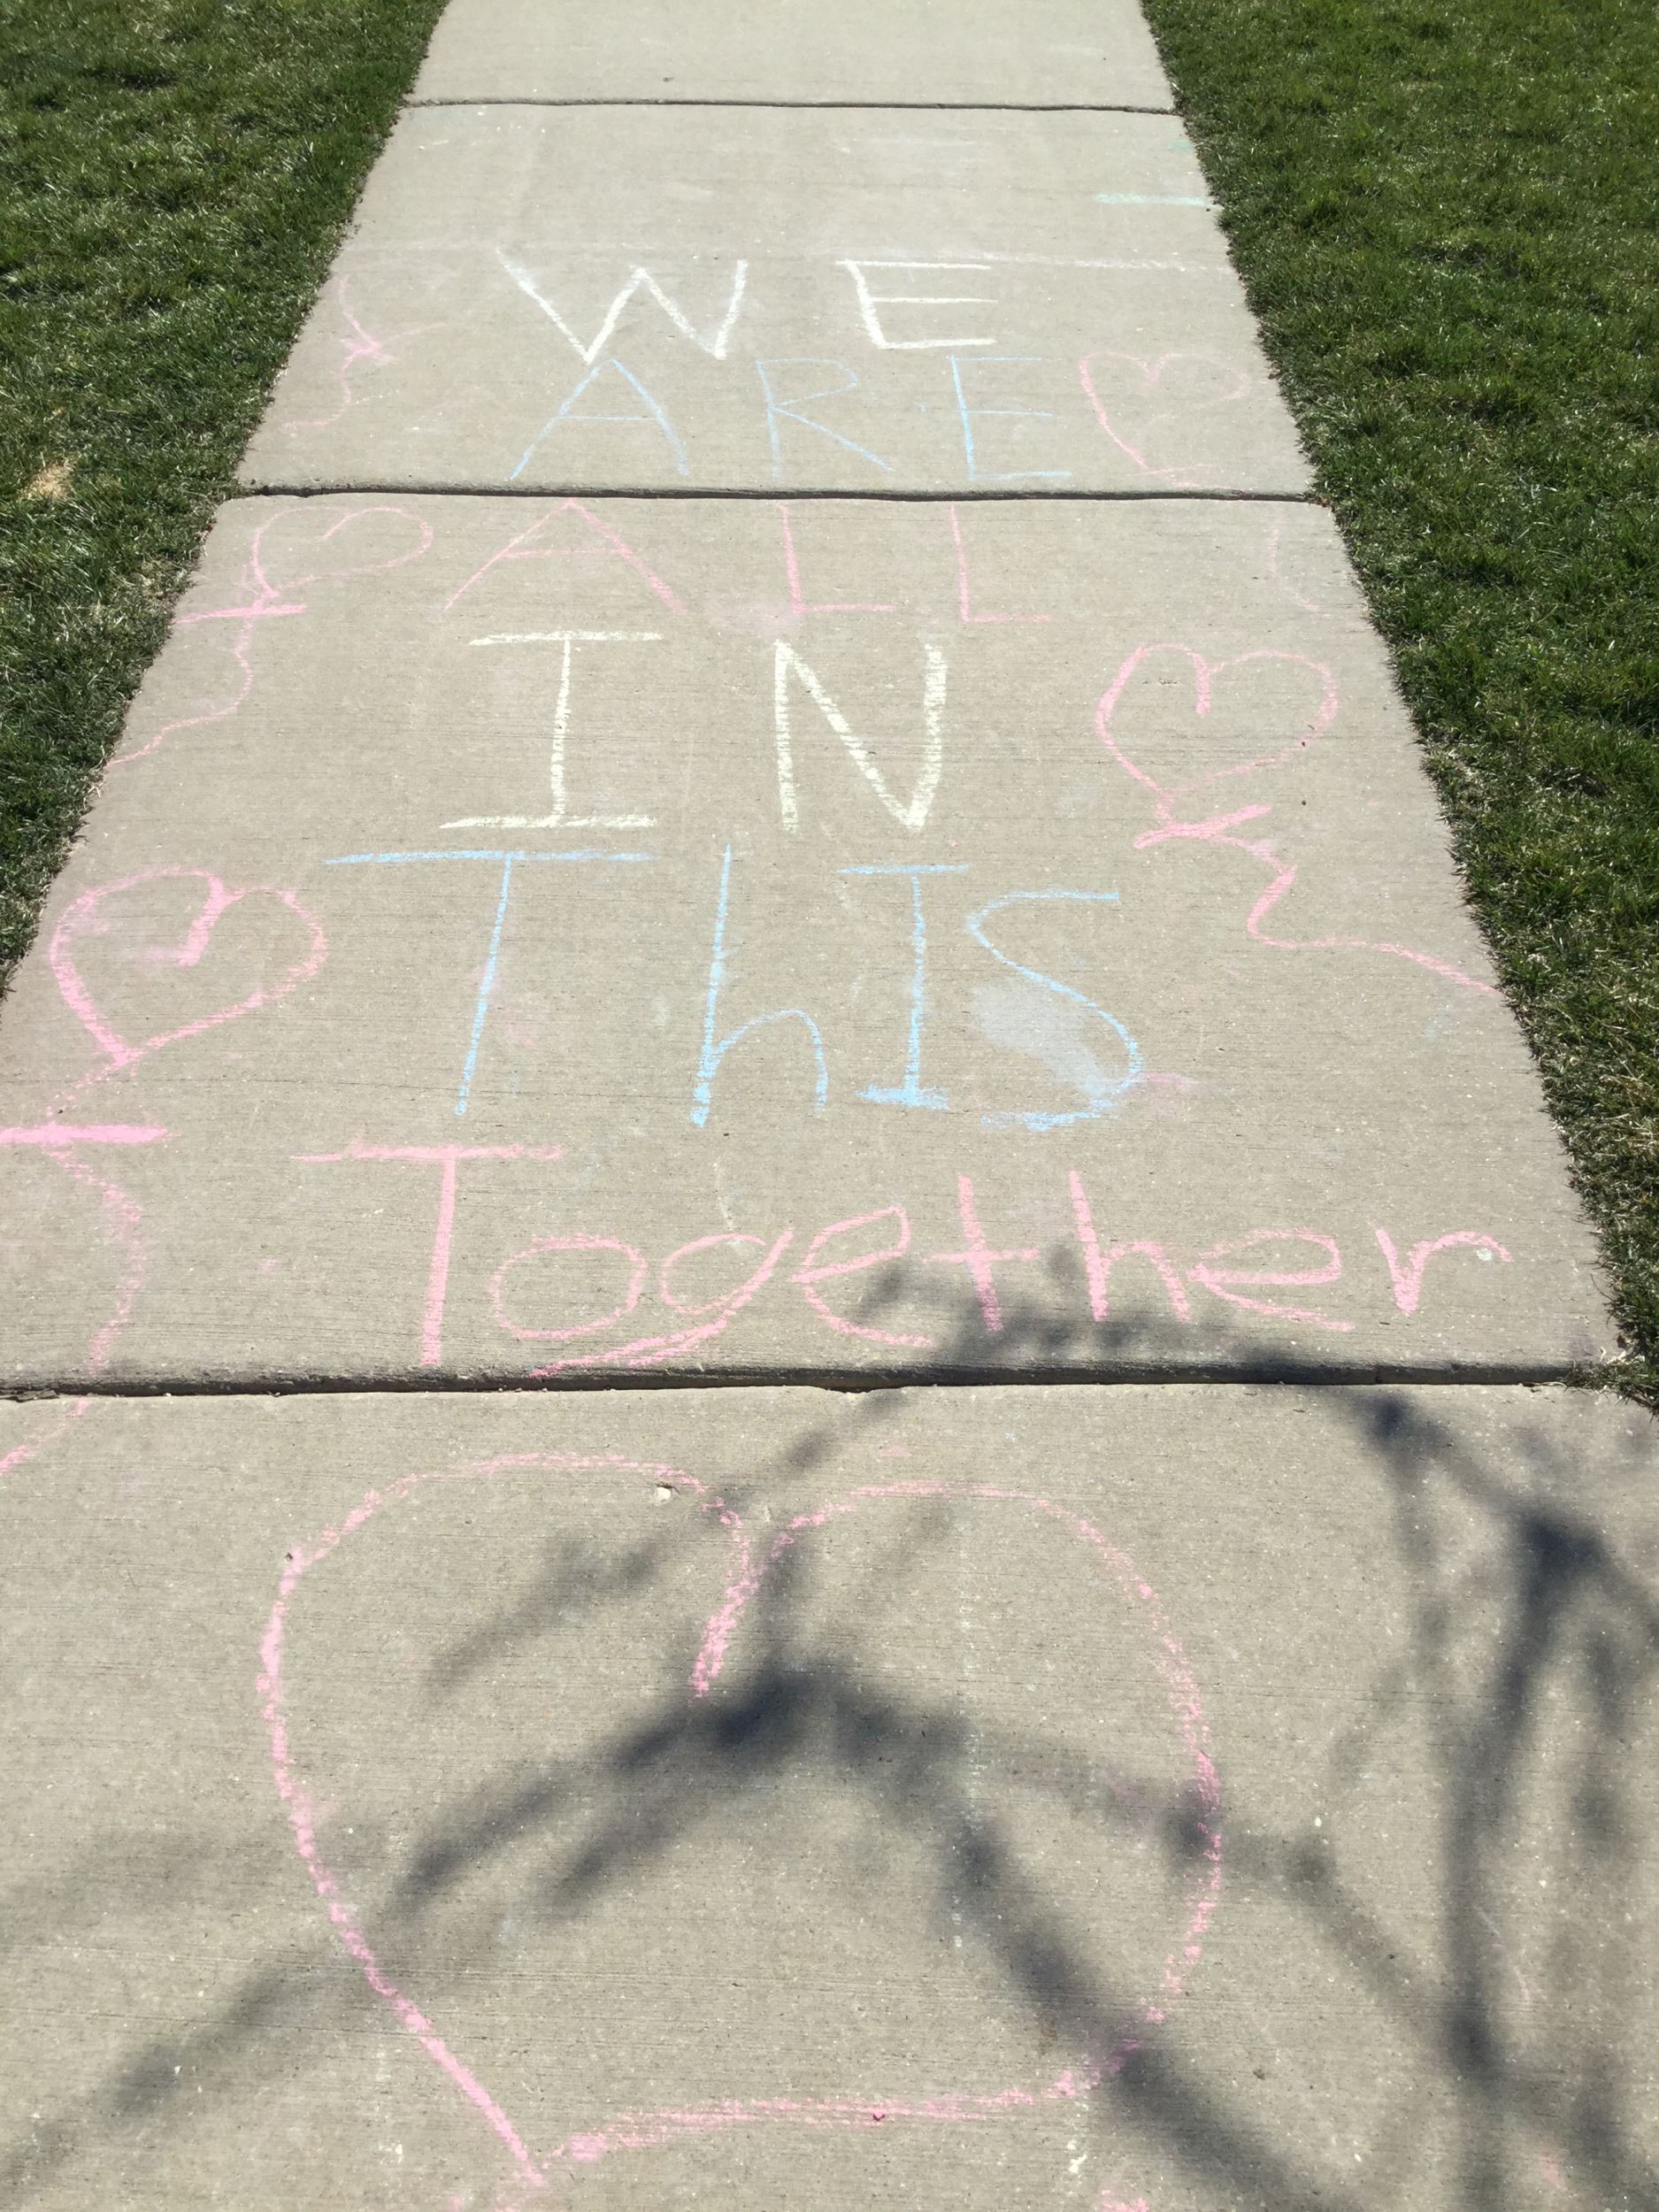 WE
ARE
ALL
IN
ThIS
Together